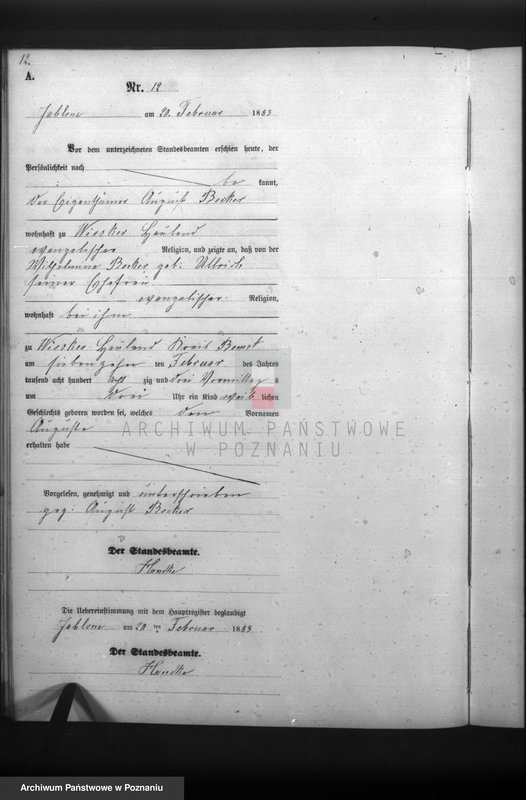 12.
A.
Nr. 12
Jablone am 20. Februar 1883
Vor dem unterzeichneten Standesbeamten erschien heute, der
Persönlichkeit nach
be kannt,
der Eigenthümer August Becker
wohnhaft zu Wiosker Hauland
evangelischer Religion, und zeigte an, daß von der
Wilhelmine Becker geb. Ullrich
seiner Ehefrau
evangelischer Religion,
wohnhaft bei ihm
zu Wiosker Hauland Kreis Bomst
am siebenzehn ten Februar des Jahres
tausend acht hundert acht zig und drei Vormittag s
um drei Uhr ein Kind weib lichen
Geschlechts geboren worden sei, welches den Vornamen
Auguste
erhalten habe
Vorgelesen, genehmigt und unterschrieben
gez. August Becker
Der Standesbeamte.
Die Uebereinstimmung mit dem Hauptregister beglaubigt
Jablone am 20 ten Februar 1883
Der Standesbeamte.
ARCHIWUM PAŃSTWOWE
W POZNANIU
Archiwum Państwowe w Poznaniu